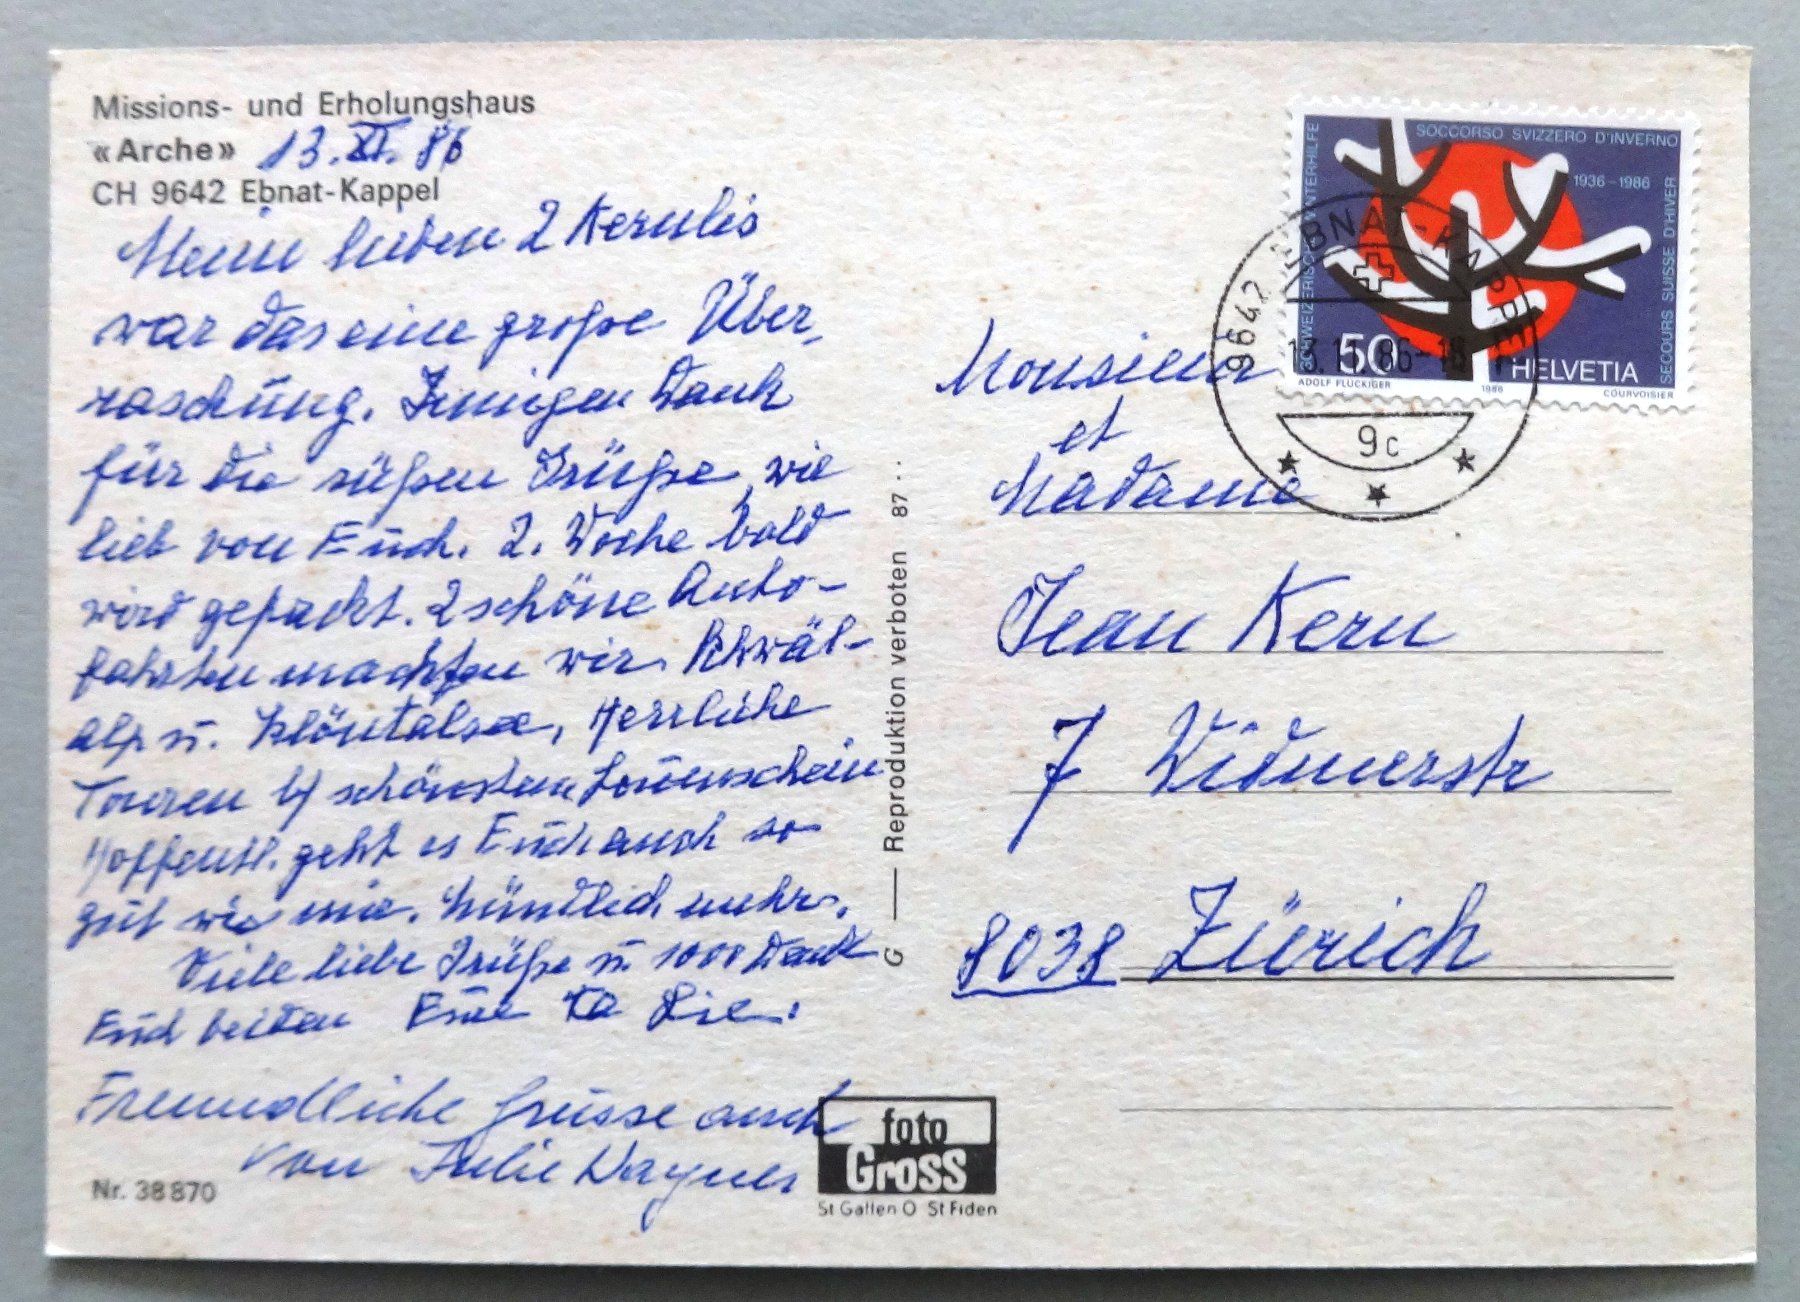 Missions- und Erholungshaus
«Arche» 13. XI. 86
CH 9642 Ebnat-Kappel
Meine lieben 2 Kernlis
war das eine große Über,
raschung. Innigen Dank
für die süßen Grüße, wie
lieb von Euch. 2. Woche bald
wird gepackt. 2 schöne Auto-
fahrten machten wir. Schwäl-
alp u. Klöntalsee, Herrliche
Touren b/ schönstem Sonnenschein
Hoffentl. geht es Euch auch so
gut wie mir. Mündlich mehr.
Viele liebe Grüße u. 1000 Dank
Euch beiden Eure
Freundliche Grüsse auch
von Julie Wagner
Nr. 38870
G — Reproduktion verboten 87 ..
foto
Gross
St Gallen O St Fiden
SCHWEIZERISCHE WINTERHILFE
SOCCORSO SVIZZERO D'INVERNO
1936-1986
SECOURS SUISSE D'HIVER
50
HELVETIA
ADOLF FLÜCKIGER
1986
COURVOISIER
9642 EBNAT-KAPPEL
13.11.86-
9c
Monsieur
et
Madame
Jean Kern
7 Widmerstr
8038 Zürich